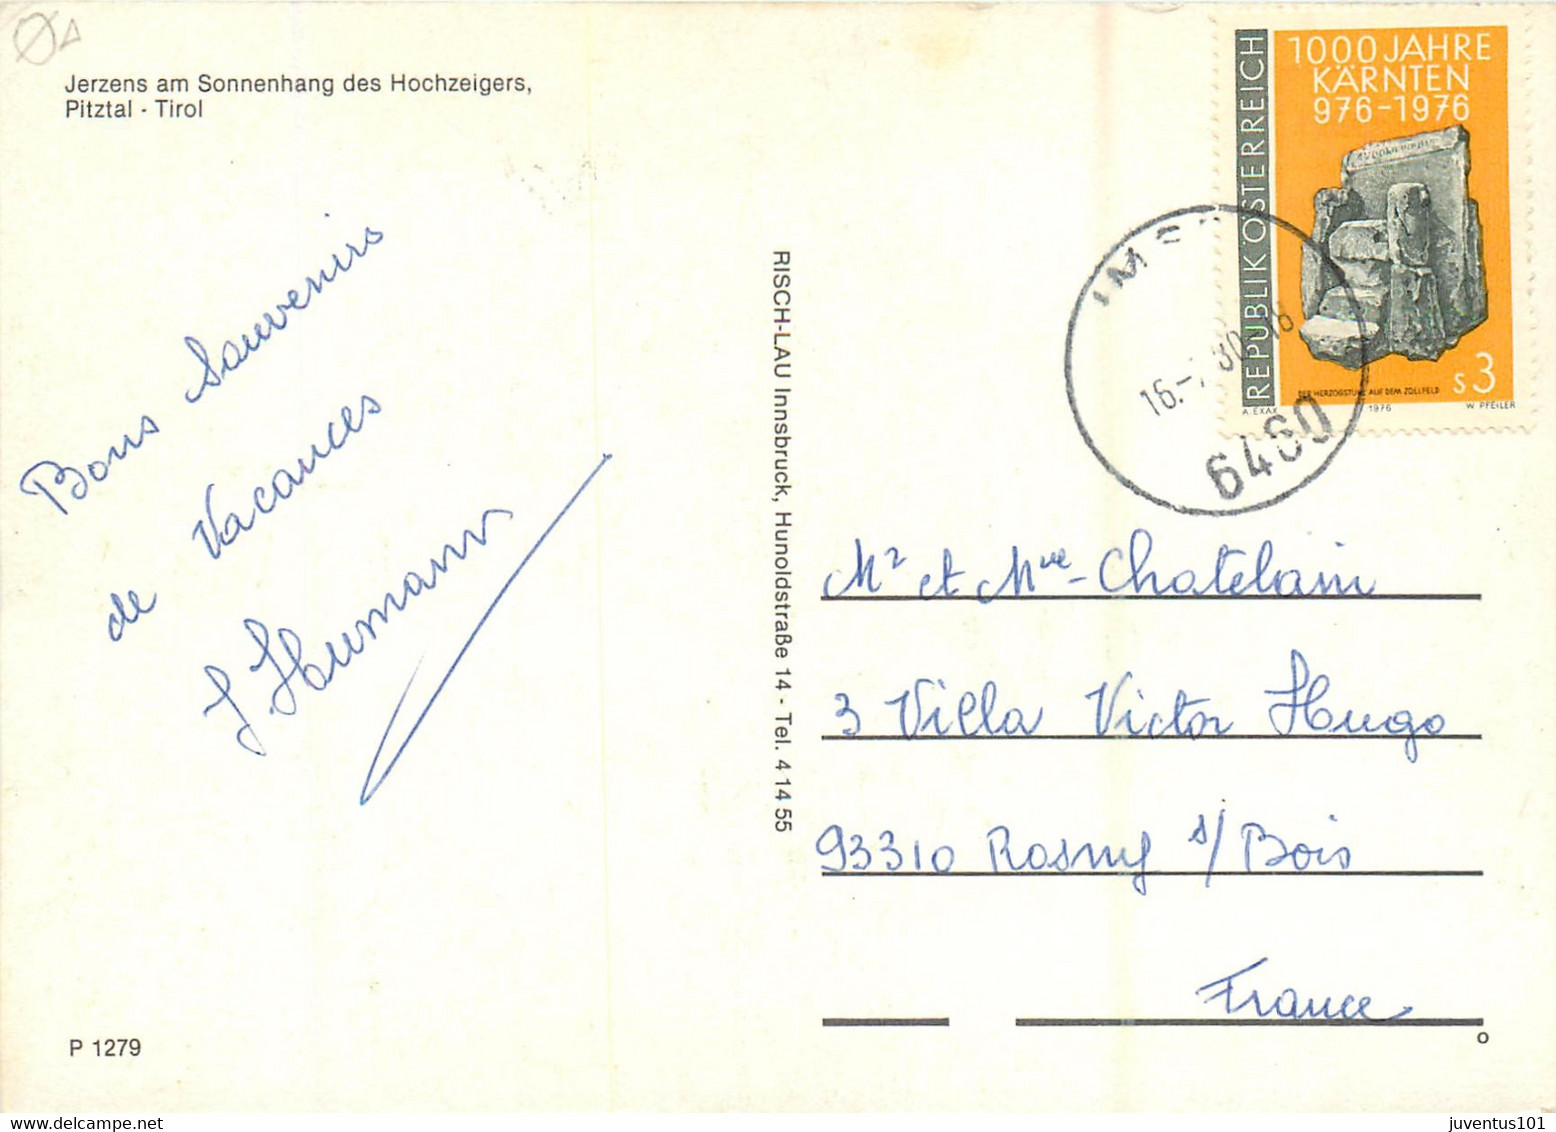 Jerzens am Sonnenhang des Hochzeigers,
Pitztal - Tirol
Bons Souvenirs
de Vacances
J. Haumann
P 1279
RISCH-LAU Innsbruck, Hunoldstraße 14 - Tel. 4 14 55
REPUBLIK ÖSTERREICH
1000 JAHRE
KÄRNTEN
976-1976
S 3
DER HERZOGSTUHL AUF DEM ZOLLFELD
A. EXAX 1976 W. PFEILER
IMS
16.-7.80-18
6460
Mr et Mme Chatelain
3 Villa Victor Hugo
93310 Rosny s/Bois
France
juventus101